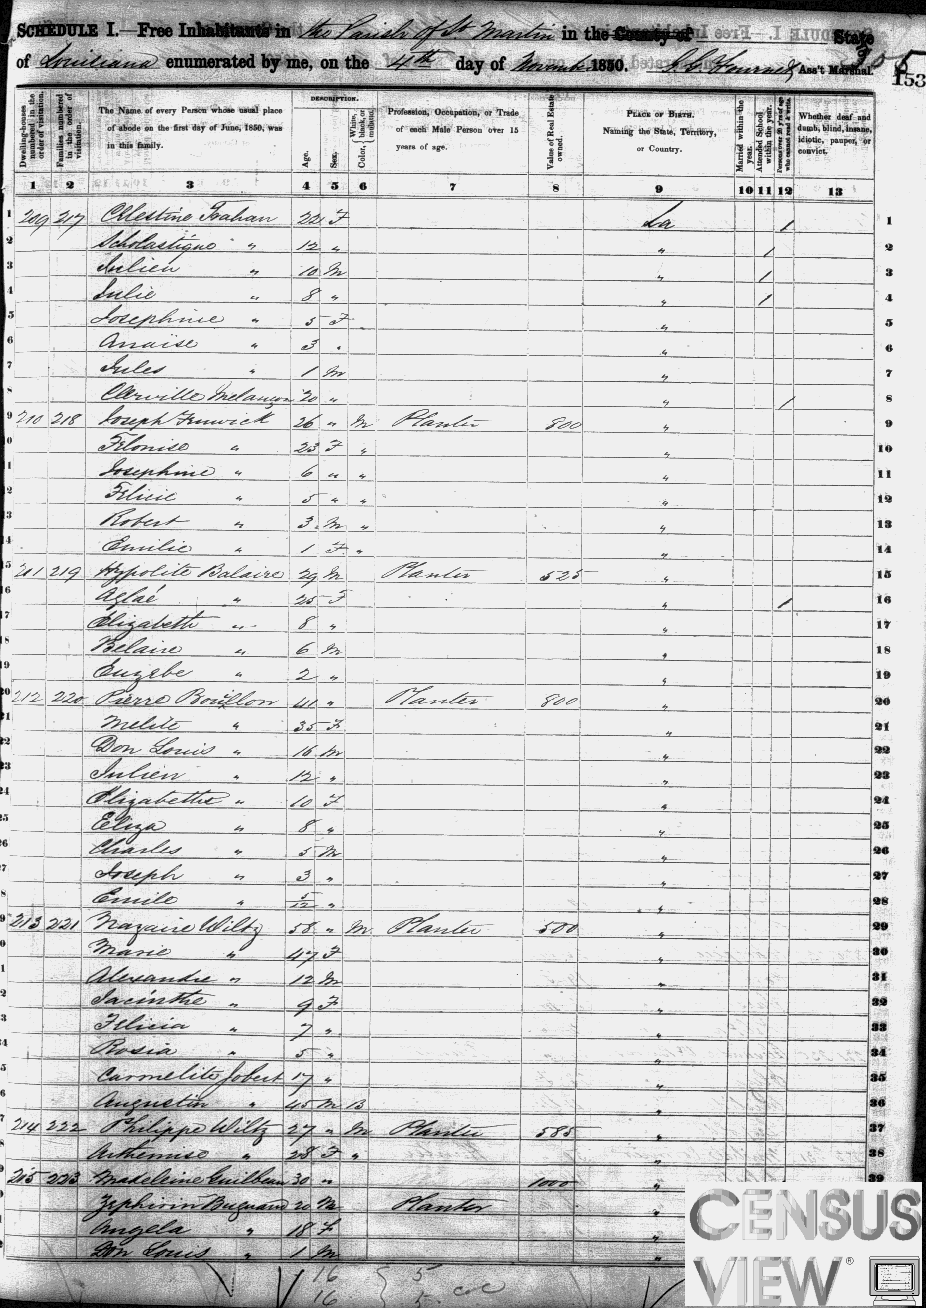 SCHEDULE I.—Free Inhabitants in the Parish of St Martin in the County of State
of Louisiana enumerated by me, on the 4th day of Novemb 1850. Ass't Marshal.
355
153
DESCRIPTION.
Dwelling-houses numbered in the order of visitation.
Families numbered in the order of visitation.
The Name of every Person whose usual place of abode on the first day of June, 1850, was in this family.
Age.
Sex.
Color, White, black, or mulatto.
Profession, Occupation, or Trade of each Male Person over 15 years of age.
Value of Real Estate owned.
PLACE OF BIRTH. Naming the State, Territory, or Country.
Married within the year.
Attended School within the year.
Persons over 20 y'rs of age who cannot read & write.
Whether deaf and dumb, blind, insane, idiotic, pauper, or convict.
1 2 3 4 5 6 7 8 9 10 11 12 13
1 209 217 Celestine Trahan 22 F La 1 1
2 Scholastique " 12 " " 1 2
3 Julien " 10 M " 1 3
4 Julie " 8 " " 1 4
5 Josephine " 5 F " 5
6 Anaise " 3 " " 6
7 Jules " 1 M " 7
8 Clerville Melançon 20 " " 1 8
9 210 218 Joseph Fenwick 26 " M Planter 800 " 9
10 Felonise " 23 F " " 10
11 Josephine " 6 " " " 11
12 Felicie " 5 " " " 12
13 Robert " 3 M " " 13
14 Emilie " 1 F " " 14
15 211 219 Hypolite Balaire 29 M Planter 525 " 15
16 Aglaé " 25 F " 1 16
17 Elizabeth " 8 " " 17
18 Belaire " 6 M " 18
19 Euzebe " 2 " " 19
20 212 220 Pierre Bouillon 41 " Planter 800 " 20
21 Melite " 35 F " 21
22 Don Louis " 16 M " 22
23 Julien " 12 " " 23
24 Elizabethe " 10 F " 24
25 Eliza " 8 " " 25
26 Charles " 5 M " 26
27 Joseph " 3 " " 27
28 Emile " 5/12 " " 28
29 213 221 Nazaire Wiltz 58 " M Planter 500 " 29
30 Marie " 47 F " 30
31 Alexandre " 12 M " 31
32 Jacinthe " 9 F " 32
33 Felicia " 7 " " 33
34 Rosia " 5 " " 34
35 Carmelite Jobert 17 " " 35
36 Augustin " 45 M B " 36
37 214 222 Philippe Wiltz 27 " M Planter 585 " 37
38 Arthemise " 28 F " " 38
39 215 223 Madeleine Guilbeau 30 " 1000 " 39
Zephirin 20 M Planter "
Angela " 18 F "
Don Louis " 1 M "
16 5
16 5
CENSUS
VIEW®